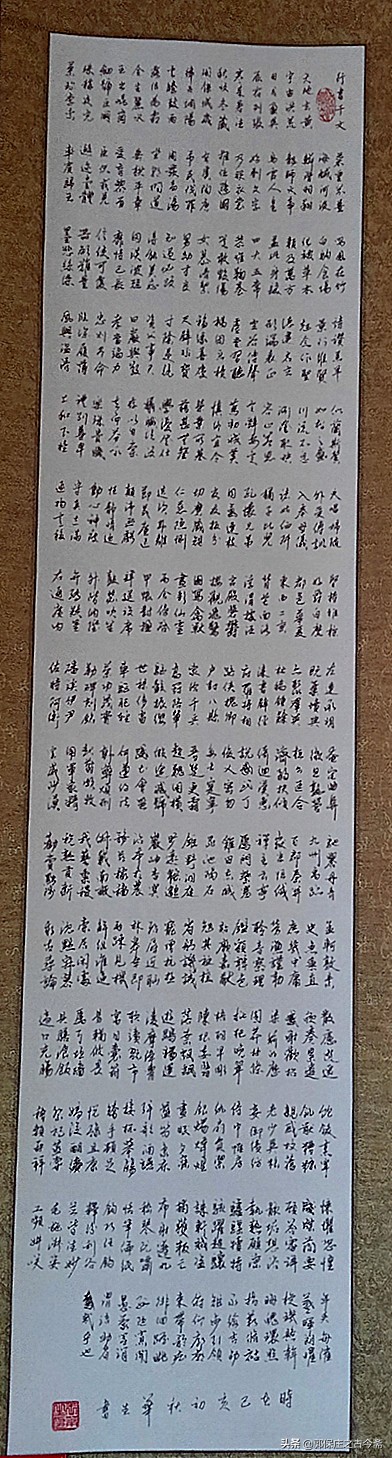 行書千文
天地玄黃
宇宙洪荒
日月盈昃
辰宿列張
寒來暑往
秋收冬藏
閏餘成歲
律呂調陽
雲騰致雨
露結為霜
金生麗水
玉出崑岡
劍號巨闕
珠稱夜光
果珍李柰
菜重芥薑
海鹹河淡
鱗潛羽翔
龍師火帝
鳥官人皇
始制文字
乃服衣裳
推位讓國
有虞陶唐
弔民伐罪
周發殷湯
坐朝問道
垂拱平章
愛育黎首
臣伏戎羌
遐邇壹體
率賓歸王
鳴鳳在竹
白駒食場
化被草木
賴及萬方
蓋此身髮
四大五常
恭惟鞠養
豈敢毀傷
女慕貞潔
男效才良
知過必改
得能莫忘
罔談彼短
靡恃己長
信使可覆
器欲難量
墨悲絲染
詩讚羔羊
景行維賢
克念作聖
德建名立
形端表正
空谷傳聲
虛堂習聽
禍因惡積
福緣善慶
尺璧非寶
寸陰是競
資父事君
曰嚴與敬
孝當竭力
忠則盡命
臨深履薄
夙興溫凊
似蘭斯馨
如松之盛
川流不息
淵澄取映
容止若思
言辭安定
篤初誠美
慎終宜令
榮業所基
藉甚無竟
學優登仕
攝職從政
存以甘棠
去而益詠
樂殊貴賤
禮別尊卑
上和下睦
夫唱婦隨
外受傅訓
入奉母儀
諸姑伯叔
猶子比兒
孔懷兄弟
同氣連枝
交友投分
切磨箴規
仁慈隱惻
造次弗離
節義廉退
顛沛匪虧
性靜情逸
心動神疲
守真志滿
逐物意移
堅持雅操
好爵自縻
都邑華夏
東西二京
背邙面洛
浮渭據涇
宮殿盤鬱
樓觀飛驚
圖寫禽獸
畫彩仙靈
丙舍傍啟
甲帳對楹
肆筵設席
鼓瑟吹笙
升階納陛
弁轉疑星
右通廣內
左達承明
既集墳典
亦聚群英
杜稿鍾隸
漆書壁經
府羅將相
路俠槐卿
戶封八縣
家給千兵
高冠陪輦
驅轂振纓
世祿侈富
車駕肥輕
策功茂實
勒碑刻銘
磻溪伊尹
佐時阿衡
奄宅曲阜
微旦孰營
桓公匡合
濟弱扶傾
綺迴漢惠
說感武丁
俊乂密勿
多士寔寧
晉楚更霸
趙魏困橫
假途滅虢
踐土會盟
何遵約法
韓弊煩刑
起翦頗牧
用軍最精
宣威沙漠
馳譽丹青
九州禹跡
百郡秦并
嶽宗泰岱
禪主云亭
雁門紫塞
雞田赤城
昆池碣石
鉅野洞庭
曠遠綿邈
巖岫杳冥
治本於農
務茲稼穡
俶載南畝
我藝黍稷
稅熟貢新
勸賞黜陟
孟軻敦素
史魚秉直
庶幾中庸
勞謙謹敕
聆音察理
鑒貌辨色
貽厥嘉猷
勉其祗植
省躬譏誡
寵增抗極
殆辱近恥
林皋幸即
兩疏見機
解組誰逼
索居閒處
沉默寂寥
求古尋論
散慮逍遙
欣奏累遣
慼謝歡招
渠荷的歷
園莽抽條
枇杷晚翠
梧桐早凋
陳根委翳
落葉飄颻
遊鵾獨運
凌摩絳霄
耽讀翫市
寓目囊箱
易輶攸畏
屬耳垣牆
具膳餐飯
適口充腸
飽飫烹宰
飢厭糟糠
親戚故舊
老少異糧
妾御績紡
侍巾帷房
紈扇圓潔
銀燭煒煌
晝眠夕寐
藍筍象床
弦歌酒讌
接杯舉觴
矯手頓足
悅豫且康
嫡後嗣續
祭祀蒸嘗
稽顙再拜
悚懼恐惶
箋牒簡要
顧答審詳
骸垢想浴
執熱願涼
驢騾犢特
駭躍超驤
誅斬賊盜
捕獲叛亡
布射遼丸
嵇琴阮嘯
恬筆倫紙
鈞巧任釣
釋紛利俗
並皆佳妙
毛施淑姿
工顰妍笑
年矢每催
羲暉朗曜
璇璣懸斡
晦魄環照
指薪修祜
永綏吉劭
矩步引領
俯仰廊廟
束帶矜莊
徘徊瞻眺
孤陋寡聞
愚蒙等誚
謂語助者
焉哉乎也
時在己亥初秋 華生書
头条 @郭保庄之古今斋